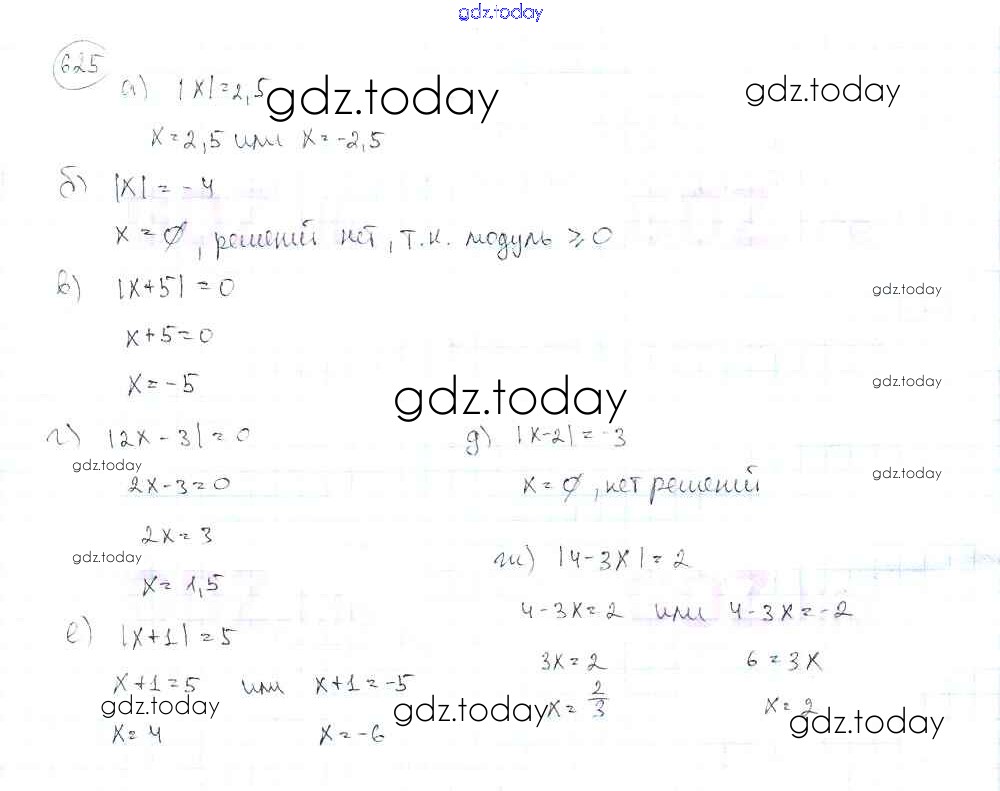 gdz.today
625
а) |x|=2,5 gdz.today gdz.today
x=2,5 или x=-2,5
б) |x|=-4
x=∅, решений нет, т.к. модуль ≥0
в) |x+5|=0 gdz.today
x+5=0
x=-5 gdz.today
gdz.today
г) |2x-3|=0
gdz.today
2x-3=0
2x=3
gdz.today
x=1,5
д) |x-2|=-3
gdz.today
x=∅, нет решений
е) |x+1|=5
x+1=5 или x+1=-5
gdz.today gdz.today
x=4 x=-6
ж) |4-3x|=2
4-3x=2 или 4-3x=-2
3x=2 6=3x
x=2/3 x=2
gdz.today